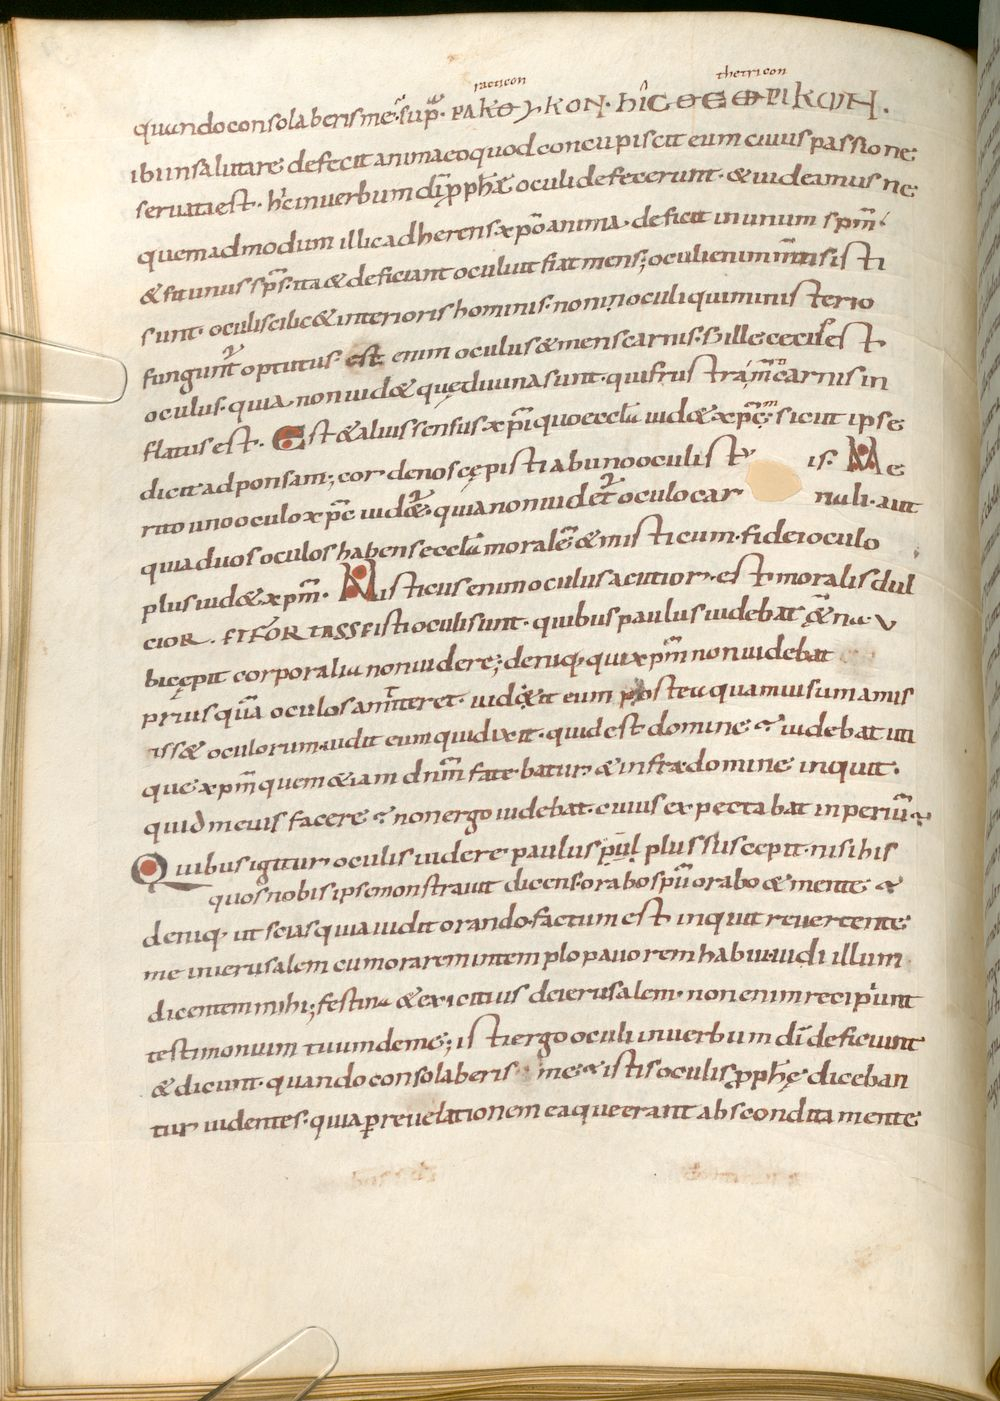 racticon thetricon
quandoconsolaberisme· sup̄· ΡΑΚΘΥΚΟΝ· hic ΘΕΘΡΙΚΩΝ.
ibi insalutare defecit anima eo quod concupiscit eum cuius passione
seruata est· hic inuerbum dī prophae oculi defecerunt· & uideamus ne
quemadmodum illic adherens xpō anima· deficit inunum spm̄·
& fit unus sps̄· ita & deficiant oculi ut fiat mens; oculi enim misti
sunt· oculi scilic& interioris hominis· non in oculi qui ministerio
fungunt optutus· est enim oculus & mens carnis· sille cecus est
oculus· quia non uid& quę diuina sunt· qui frustra carnis in
flatus est· Est & alius sensus xpī quo eccla uid& xpm̄; sicut ipse
dicit ad ponsam; cor denos cępisti ab uno oculis t is· Me
rito uno oculo xpc uid&· quia non uidet oculo car nali· aut
quia duos oculos habens eccla morale & misticum· fidei oculo
plus uid& xpm̄· Misticus enim oculus acutior· est moralis dul
cior. FT FORTASSE isti oculi sunt· quibus paulus uidebat qn̄a u
bi cępit corporalia non uidere; deniq; qui xpm̄ non uidebat
prius quā oculos amitteret· uid&it eum postea quamuisum amis
iss& oculorum· uidit eum qui dixit· quid est domine uidebat uti
que xpm̄ quem & iam dnm̄ fatebatur & infra domine inquit·
quid me uis facere non ergo uidebat· cuius expectabat inperiū
Quibus igitur oculis uidere paulus pul plus suscepit· nisi his
quos nobis ipse monstrauit dicens· orabo spu orabo & mente
deniq; ut scias quia uidit orando· factum est inquit reuertente
me inierusalem cum orarem intemplo pauorem habui· uidi illum
dicentem mihi; festina & exi citius deierusalem· non enim recipiunt
testimonium tuum deme; isti ergo oculi inuerbum dī deficiunt
& dicunt· quando consolaberis me istis oculis prophę diceban
tur uidentes· quia per reuelationem ea que erant abscondita mente